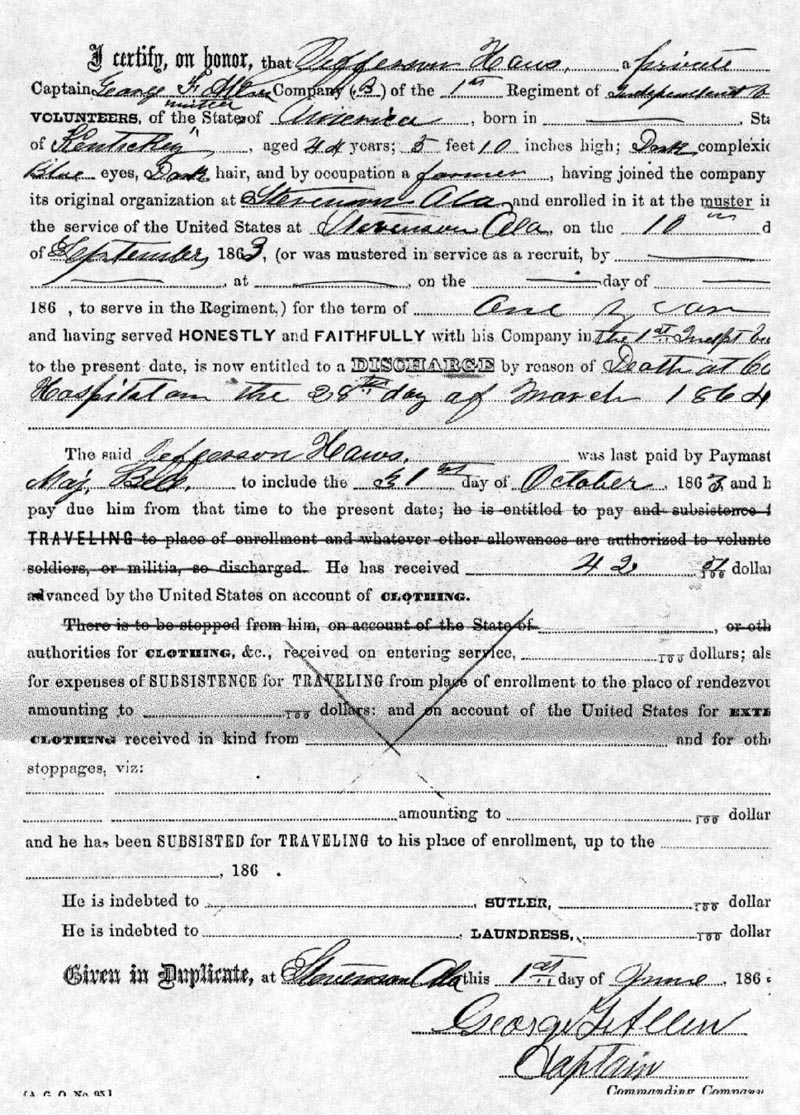 I certify, on honor, that Jefferson Haws, a private
Captain George F. Allen Company (B) of the 1st Regiment of Independent
VOLUNTEERS, of the United States of America, born in Sta
of Kentucky, aged 44 years; 5 feet 10 inches high; Dark complexio
Blue eyes, Dark hair, and by occupation a farmer, having joined the company
its original organization at Stevenson Ala and enrolled in it at the muster in
the service of the United States at Stevenson Ala, on the 10 d
of September, 1863, (or was mustered in service as a recruit, by
, at , on the day of
186 , to serve in the Regiment,) for the term of One year
and having served HONESTLY and FAITHFULLY with his Company in the 1st Indpt
to the present date, is now entitled to a DISCHARGE by reason of Death at
Hospital on the 28th day of March 1864
The said Jefferson Haws, was last paid by Paymast
Maj. to include the 31st day of October, 1863 and h
pay due him from that time to the present date; he is entitled to pay and subsistence f
TRAVELING to place of enrollment and whatever other allowances are authorized to volunte
soldiers, or militia, so discharged. He has received 42 51/100 dollar
advanced by the United States on account of CLOTHING.
There is to be stopped from him, on account of the State of , or oth
authorities for CLOTHING, &c., received on entering service, /100 dollars; als
for expenses of SUBSISTENCE for TRAVELING from place of enrollment to the place of rendezvou
amounting to /100 dollars: and on account of the United States for EXTR
CLOTHING received in kind from and for othe
stoppages, viz:
amounting to /100 dollar
and he has been SUBSISTED for TRAVELING to his place of enrollment, up to the
, 186 .
He is indebted to , SUTLER, /100 dollar
He is indebted to , LAUNDRESS, /100 dollar
Given in Duplicate, at Stevenson Ala this 1st day of June, 186
George F Allen
Captain
[A. G. O. No. 95] Commanding Company